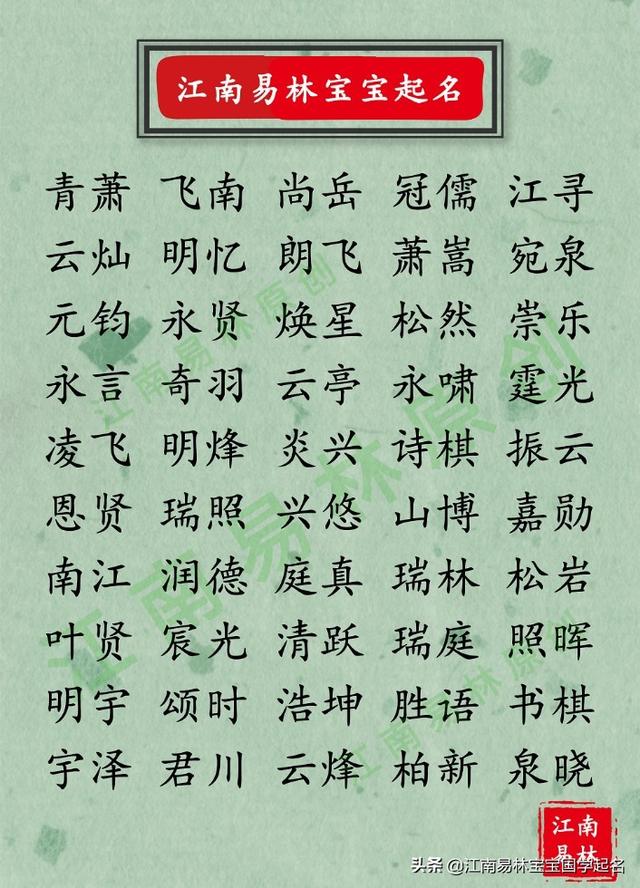 江南易林宝宝起名
青萧 飞南 尚岳 冠儒 江寻
云灿 明忆 朗飞 萧嵩 宛泉
元钧 永贤 焕星 松然 崇乐
永言 奇羽 云亭 永啸 霆光
凌飞 明烽 炎兴 诗棋 振云
恩贤 瑞照 兴悠 山博 嘉勋
南江 润德 庭真 瑞林 松岩
叶贤 宸光 清跃 瑞庭 照晖
明宇 颂时 浩坤 胜语 书棋
宇泽 君川 云烽 柏新 泉晓
江南易林原创
江南易林原创
江南易林原创
江南
易林
头条 @江南易林宝宝国学起名